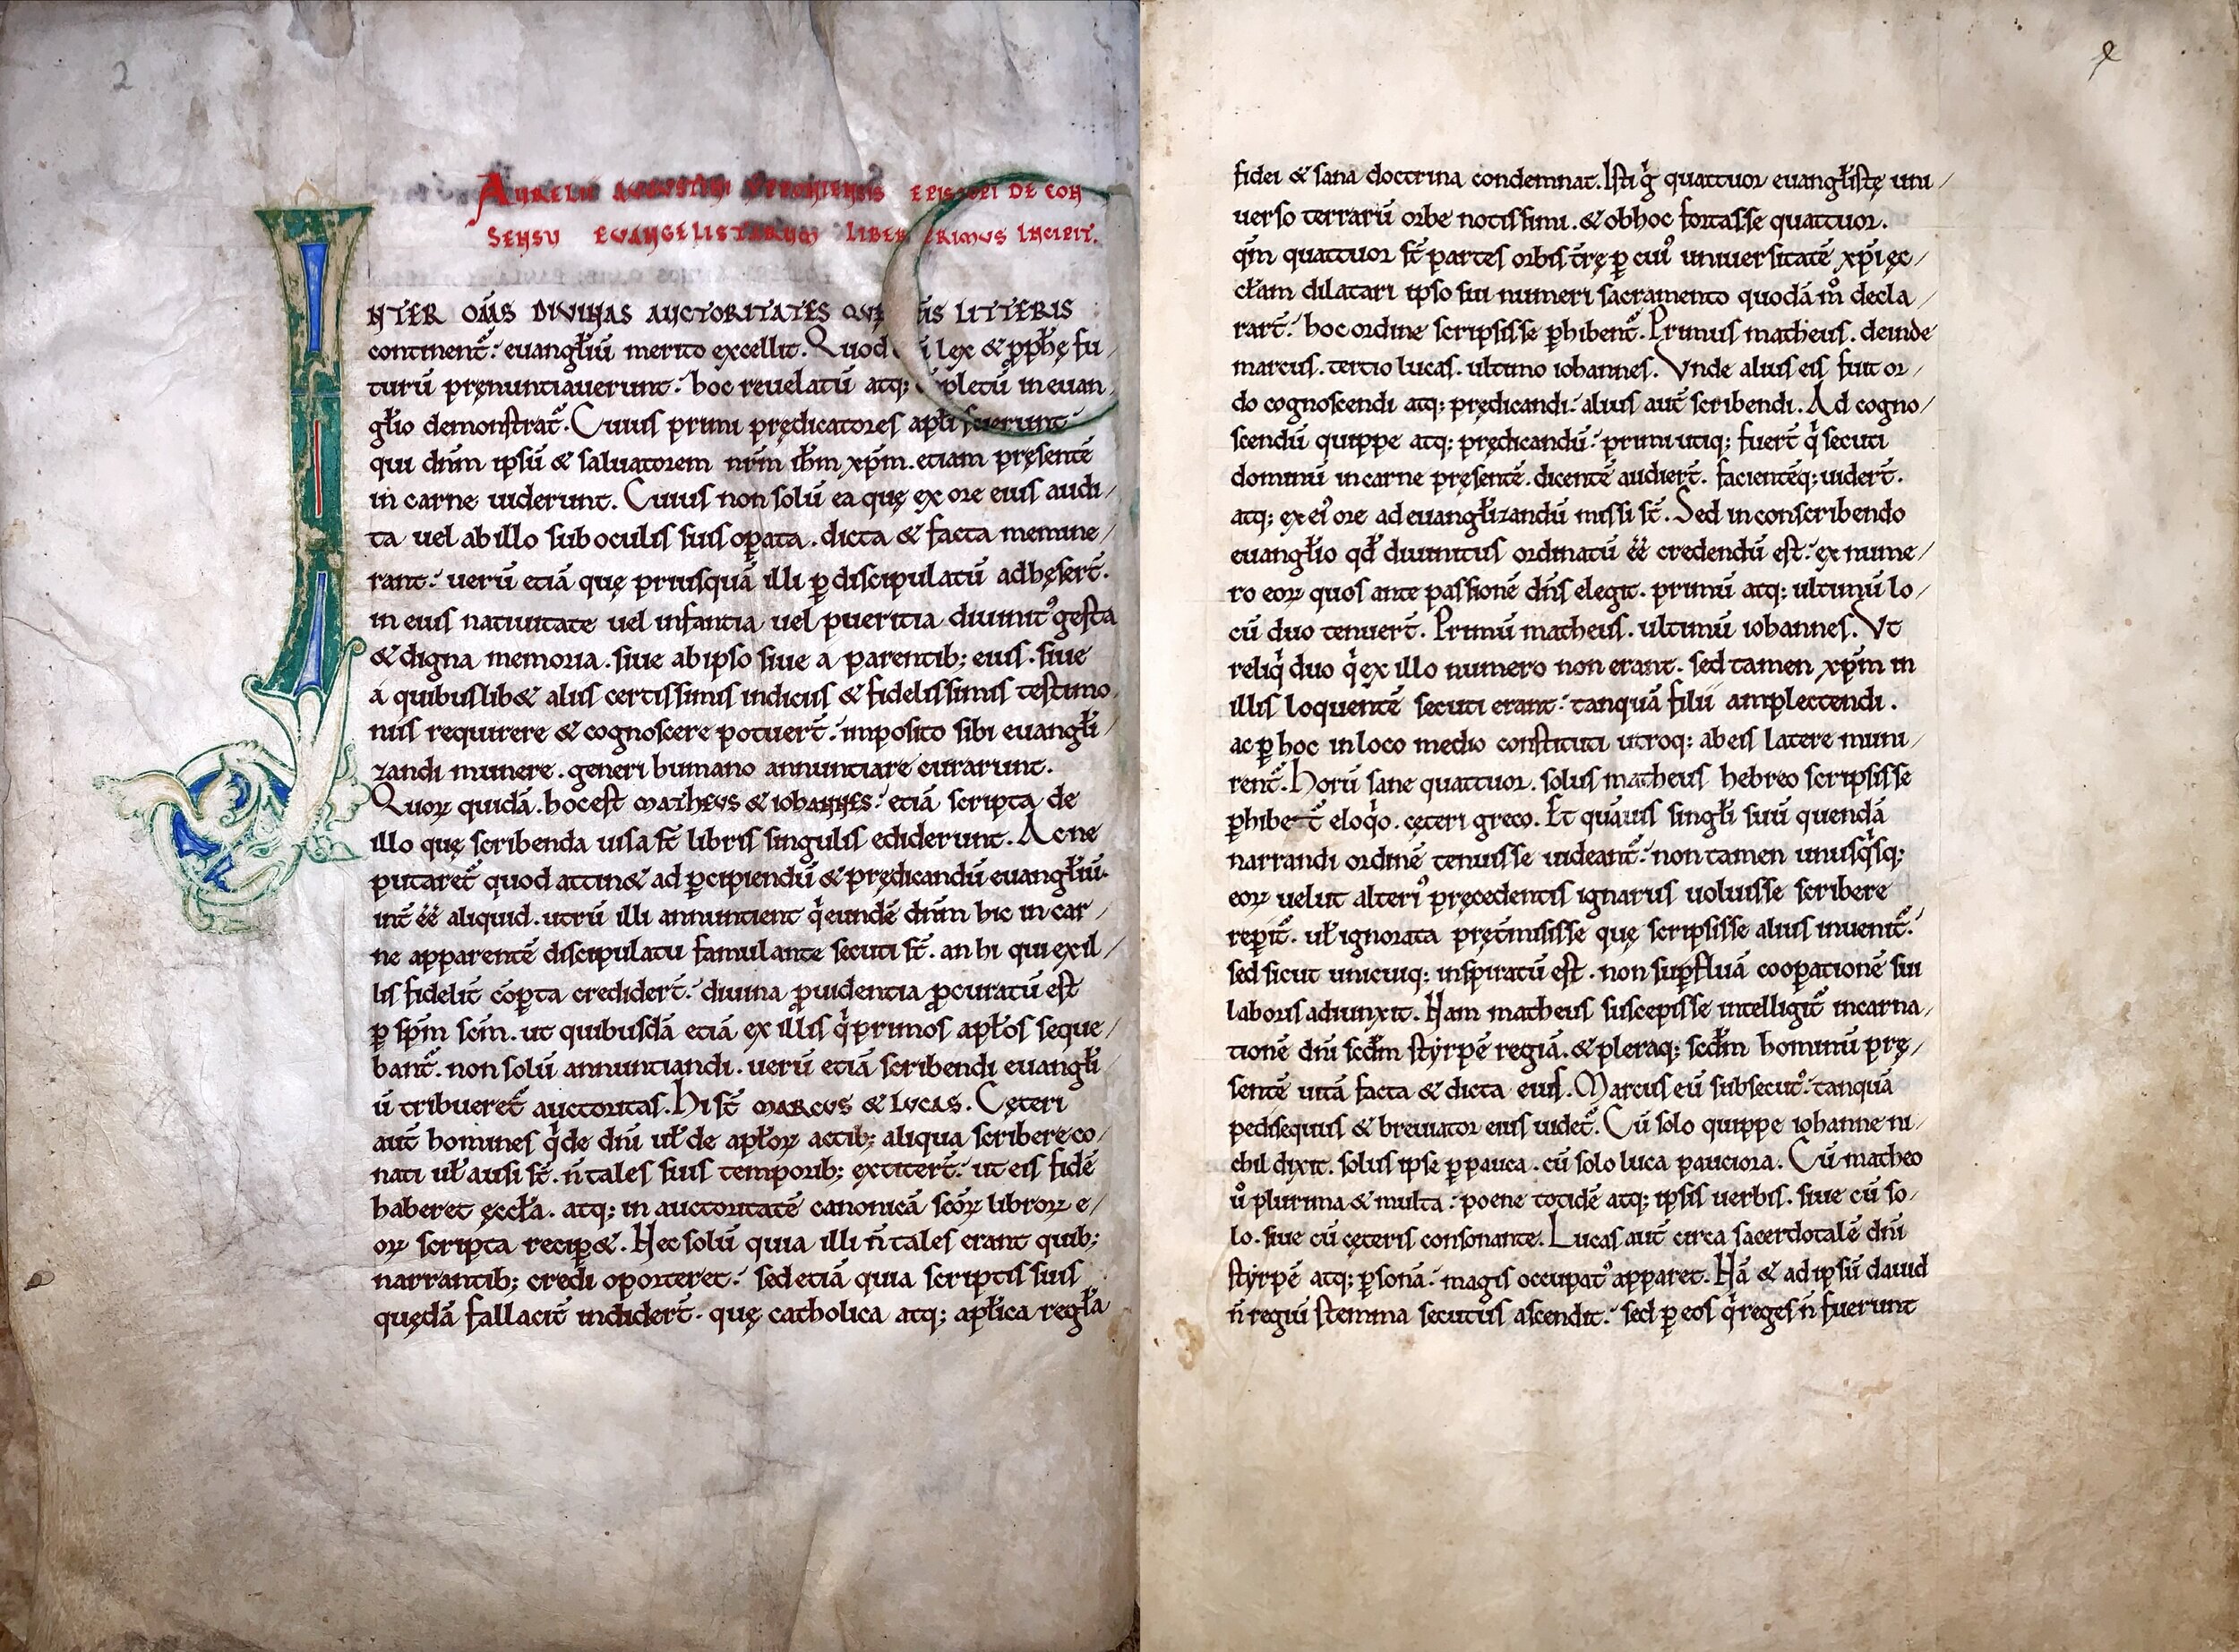 2
AURELII AUGUSTINI YPPONIENSIS EPISCOPI DE CON
SENSU EVANGELISTARUM LIBER PRIMUS INCIPIT.
INTER OM̄S DIVINAS AUCTORITATES QUE
ĪS LITTERIS
continent᷑. euangłiū merito excellit. Quod
i lex & ꝓph̄ę fu/
turū pręnuntiauerunt. hoc reuelatū atq;
pletū in euan/
gło demonstrat᷑. Cuius primi prędicatores apłi fuerunt
qui dn̄m ipsū & saluatorem nr̄m ih̄m xp̄m. etiam pręsentē
in carne uiderunt. Cuius non solū ea quę ex ore eius audi/
ta uel ab illo sub oculis suis oꝑata. dicta & facta memine/
rant. uerū etiā quę priusquā illi ꝑ discipulatū adhęser̄t.
in eius natiuitate uel infantia uel pueritia diuinitꝰ gesta
& digna memoria. siue ab ipso siue a parentib; eius. siue
a quibuslib& aliis certissimis indiciis & fidelissimis testimo/
niis requirere & cognoscere potuer̄t. imposito sibi euangłi/
zandi munere. generi humano annuntiare curarunt.
Quoꝝ quidā. hoc est MATHEUS & IOHANNES. etiā scripta de
illo quę scribenda uisa st̄ libris singulis ediderunt. Ac ne
putaret᷑ quod attin& ad ꝑcipiendū & prędicandū euangłiū.
int̄ ee̅ aliquid. utrū illi annuntient qͥ eundē dn̄m hic in car/
ne apparentē discipulatu famulante secuti st̄. an hi qui ex il/
lis fidelit̄ cōꝑta credider̄t. diuina ꝓuidentia ꝓcuratū est
ꝑ sp̄m sc̄m. ut quibusdā etiā ex illis qͥ primos apłos seque/
bant᷑. non solū annuntiandi. uerū etiā scribendi euangłi
ū tribueret᷑ auctoritas. Hi st̄ MARCUS & LUCAS. Cęteri
aut̄ homines qͥ de dn̄i uł de apłoꝝ actib; aliqua scribere co/
nati uł ausi st̄. n̄ tales suis temporib; extiter̄t. ut eis fidē
haberet ęccła. atq; in auctoritatē canonicā sc̄oꝝ libroꝝ e/
oꝝ scripta recip&. Nec solū quia illi n̄ tales erant quib;
narrantib; credi oporteret. sed etiā quia scriptis suis
quędā fallacit̄ indider̄t. quę catholica atq; apłica regła
fidei & sana doctrina condemnat. Isti gͥ quattuor euangłistę uni/
uerso terrarū orbe notissimi. & ob hoc fortasse quattuor.
qm̄ quattuor st̄ partes orbis t̄rę ꝑ cuiꝰ uniuersitatē xp̄i ęc/
cłam dilatari ipso sui numeri sacramento quodā mͦ decla/
rar̄t. hoc ordine scripsisse ꝑhibent᷑. Primus matheus. deinde
marcus. tertio lucas. ultimo iohannes. Unde alius eis fuit or/
do cognoscendi atq; prędicandi. alius aut̄ scribendi. Ad cogno/
scendū quippe atq; prędicandū. primi utiq; fuer̄t qͥ secuti
dominū in carne pręsentē. dicentē audier̄t. facientēq; uider̄t.
atq; ex eiꝰ ore ad euangłizandū missi st̄. Sed in conscribendo
euangło qd̄ diuinitus ordinatū ee̅ credendū est. ex nume/
ro eoꝝ quos ante passionē dn̄s elegit. primū atq; ultimū lo/
cū duo tenuer̄t. Primū matheus. ultimū iohannes. Ut
reliqͥ duo qͥ ex illo numero non erant. sed tamen xp̄m in
illis loquentē secuti erant. tanquā filii amplectendi.
ac ꝑ hoc in loco medio constituti utroq; ab eis latere muni/
rent᷑. Horū sane quattuor. solus matheus hebreo scripsisse
ꝑhibet᷑ eloqͥo. cęteri greco. Et quāuis singłi suū quendā
narrandi ordinē tenuisse uideant᷑. non tamen unusqͥsq;
eoꝝ uelut alteriꝰ pręcedentis ignarus uoluisse scribere
reꝑit᷑. uł ignorata pręt̄misisse quę scripsisse alius inuenit᷑.
sed sicut unicuiq; inspiratū est. non suꝑfluā cooꝑationē sui
laboris adiunxit. Nam matheus suscepisse intelligit᷑ incarna/
tionē dn̄i scd̄m styrpē regiā. & pleraq; scd̄m hominū prę/
sentē uitā facta & dicta eius. Marcus eū subsecutꝰ. tanquā
pedisequus & breuiator eius uidet᷑. Cū solo quippe iohanne ni/
chil dixit. solus ipse ꝑpauca. cū solo luca pauciora. Cū matheo
uͦ plurima & multa. poene totidē atq; ipsis uerbis. siue cū so/
lo. siue cū cęteris consonante. Lucas aut̄ circa sacerdotalē dn̄i
styrpē atq; ꝑsonā. magis occupatꝰ apparet. Nā & ad ipsū dauid
n̄ regiū stemma secutus ascendit. sed ꝑ eos qͥ reges n̄ fuerunt